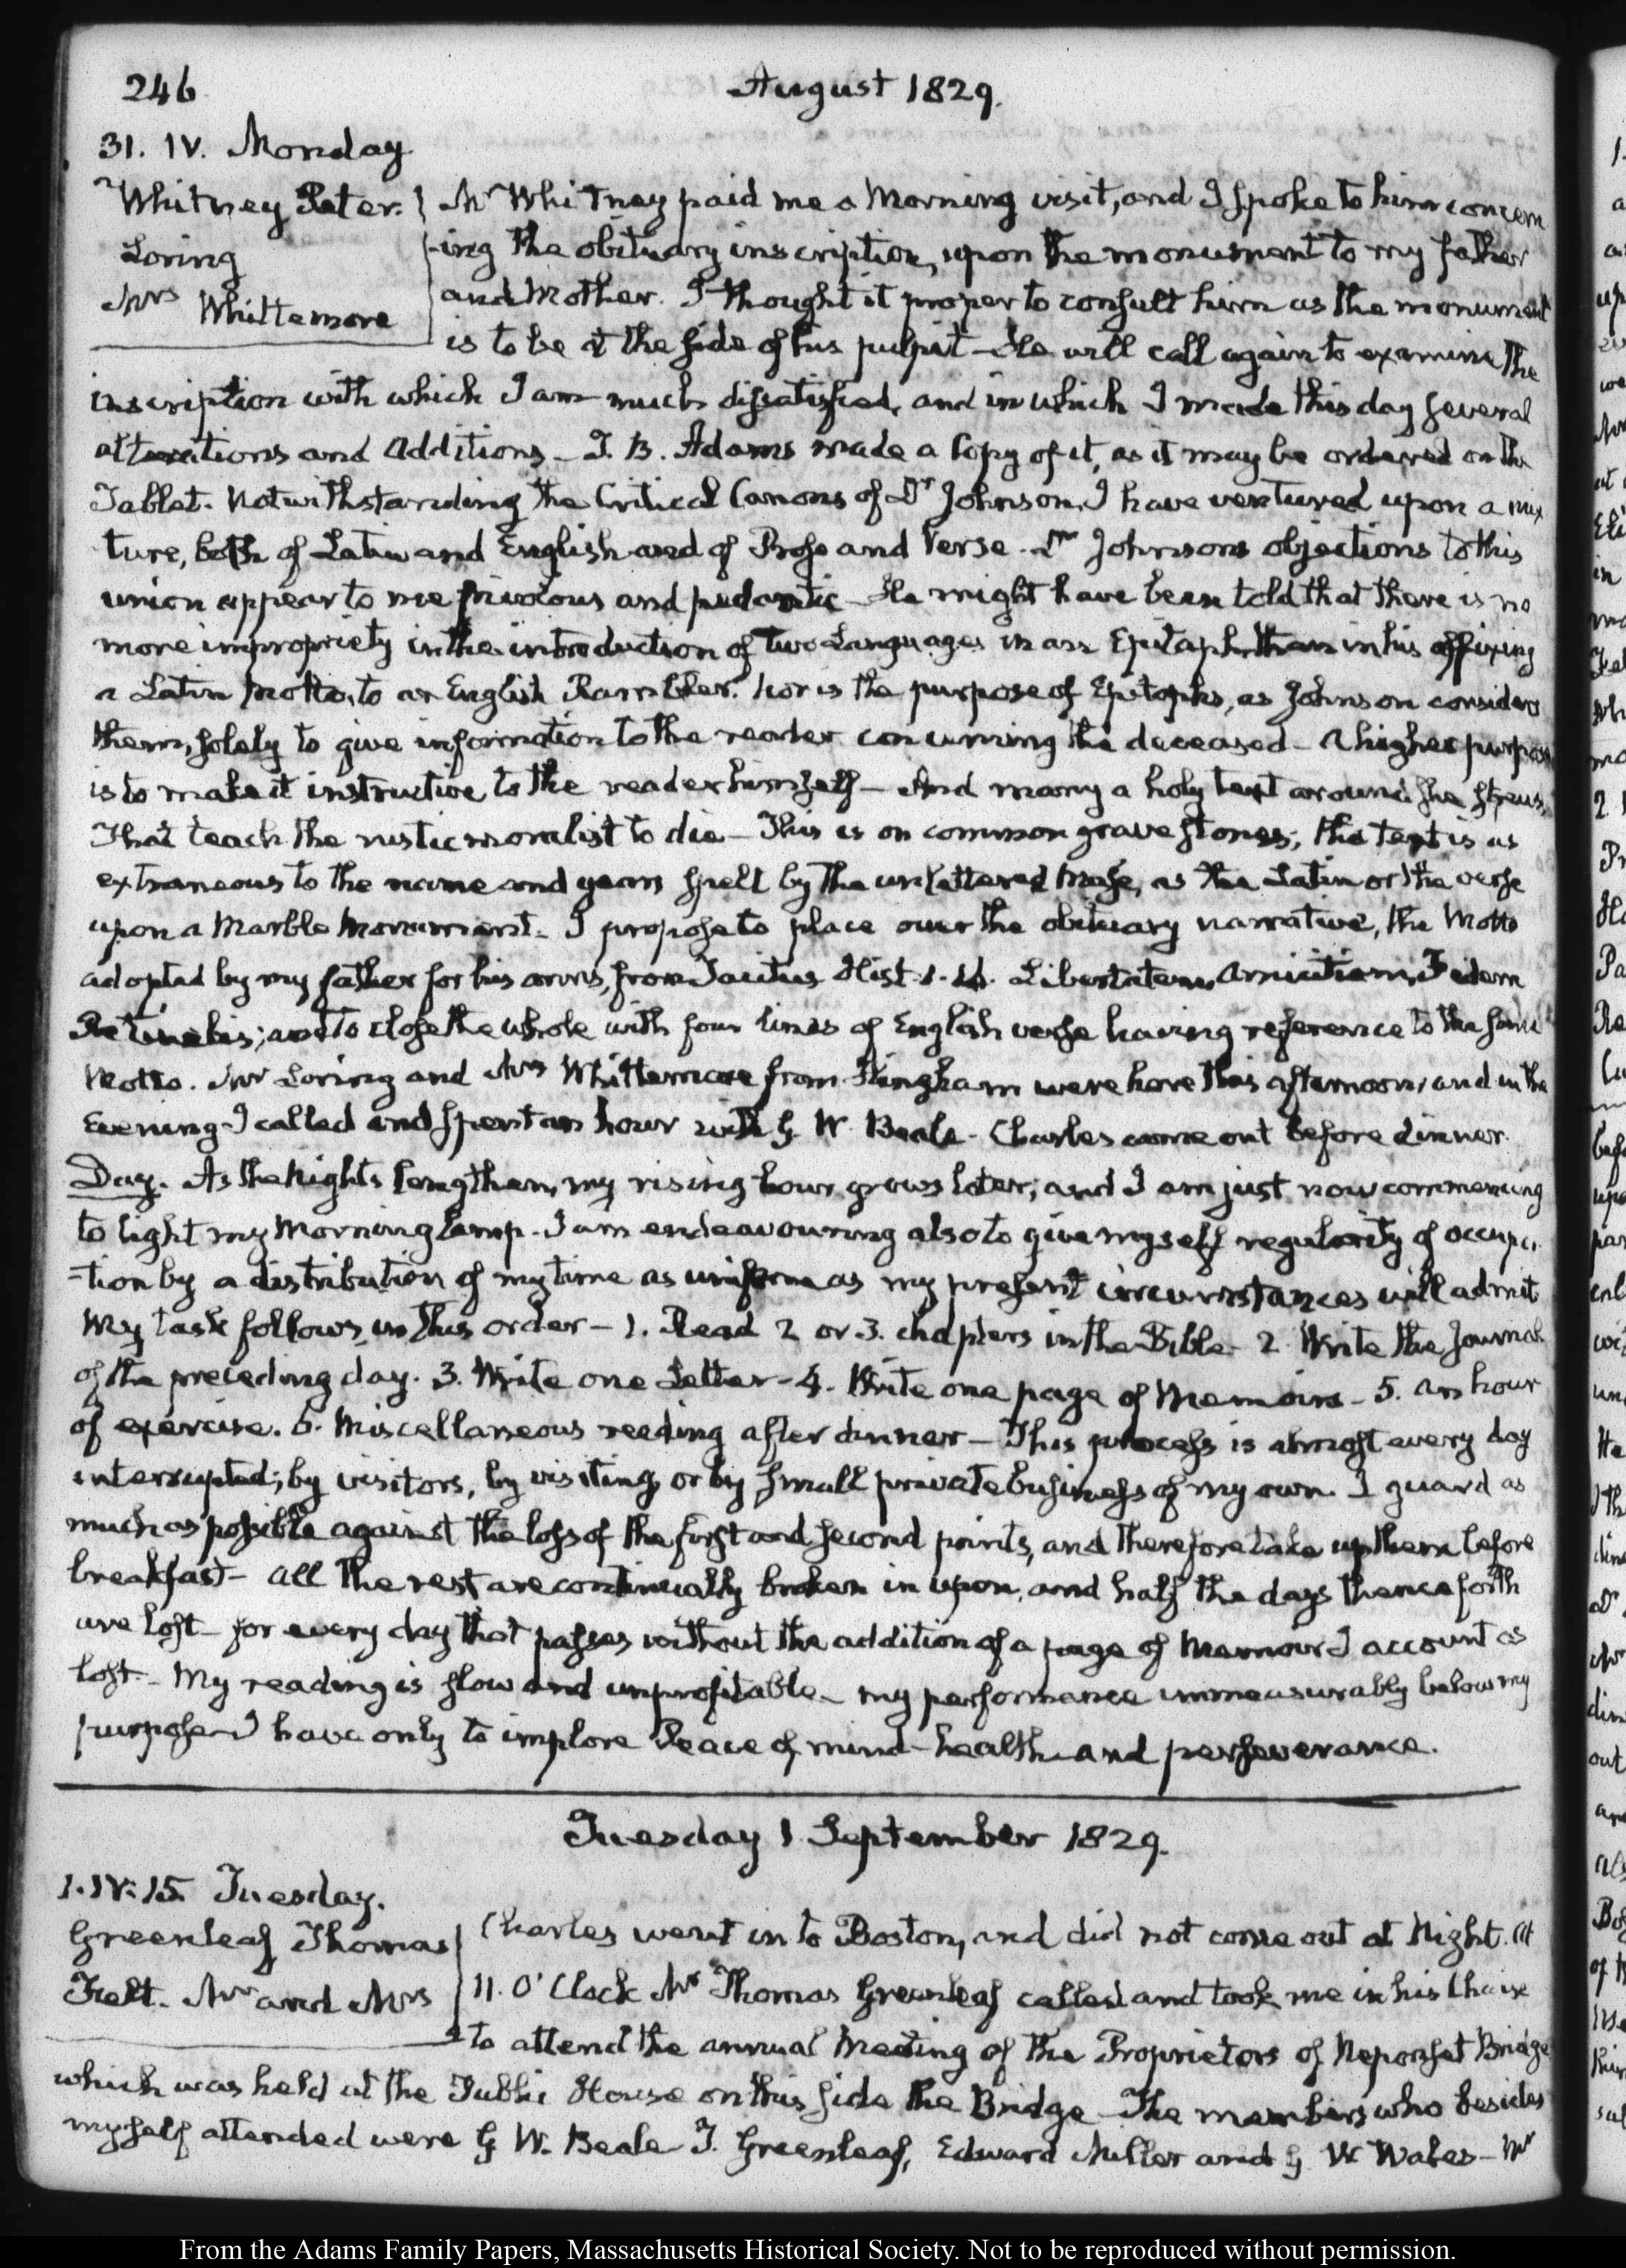 246
August 1829.
31. IV. Monday
Whitney Peter.
Loring
Mrs Whittemore
Mr Whitney paid me a Morning visit, and I spoke to him concern
-ing the obituary inscription, upon the monument to my father
and Mother. I thought it proper to consult him as the monument
is to be at the side of his pulpit – He will call again to examine the
inscription with which I am much dissatisfied, and in which I made this day several
alterations and additions – T. B. Adams made a Copy of it, as it may be ordered on the
Tablet. Notwithstanding the Critical Canons of Dr Johnson, I have ventured upon a mix
ture, both of Latin and English and of Prose and Verse. Dr Johnsons objections to this
union appear to me frivolous and pedantic – He might have been told that there is no
more impropriety in the introduction of two Languages in an Epitaph than in his affixing
a Latin Motto, to an English Rambler. Nor is the purpose of Epitaphs, as Johnson considers
them, solely to give information to the reader concerning the deceased – A higher purpose
is to make it instructive to the reader himself – And many a holy text around she strews,
That teach the rustic moralist to die – This is on common grave stones; the text is as
extraneous to the name and years spelt by the unlettered Muse, as the Latin or the verse
upon a Marble Monument – I propose to place over the obituary narrative, the Motto
adopted by my father for his arms, from Tacitus Hist. 1. Libertatem, Amicitiam, Fidem
Retinebis; and to close the whole with four lines of English verse having reference to the same
Motto. Mr Loring and Mrs Whittemore from Hingham were here this afternoon, and in the
Evening I called and spent an hour with G. W. Beale – Charles came out before dinner.
Day. As the Nights lengthen, my rising hour grows later; and I am just now commencing
to light my Morning lamp. I am endeavouring also to give myself regularity of occupa
-tion by a distribution of my time as uniform as my present circumstances will admit
My task follows in this order – 1. Read 2 or 3. chapters in the Bible – 2. Write the Journal
of the preceding day. 3. Write one Letter – 4. Write one page of Memoirs – 5. An hour
of exercise. 6. Miscellaneous reading after dinner – This process is almost every day
interrupted; by visitors, by visiting, or by small private business of my own. I guard as
much as possible against the loss of the first and second points, and therefore take up them before
breakfast – All the rest are continually broken in upon, and half the days thenceforth
are lost – for every day that passes without the addition of a page of Memoir I account as
lost – My reading is slow and unprofitable – my performance immeasurably below my
purpose – I have only to implore Peace of mind – health – and perseverance.
Tuesday 1 September 1829.
1. IV: 15. Tuesday.
Greenleaf Thomas
Felt. Mr and Mrs
Charles went in to Boston, and did not come out at Night. At
11. O'Clock Mr Thomas Greenleaf called and took me in his Chaise
to attend the annual Meeting of the Proprietors of Neponset Bridge
which was held at the Public House on this side the Bridge – The members who besides
myself attended were G. W. Beale T. Greenleaf, Edward Miller and G W Wales – Mr
From the Adams Family Papers, Massachusetts Historical Society. Not to be reproduced without permission.